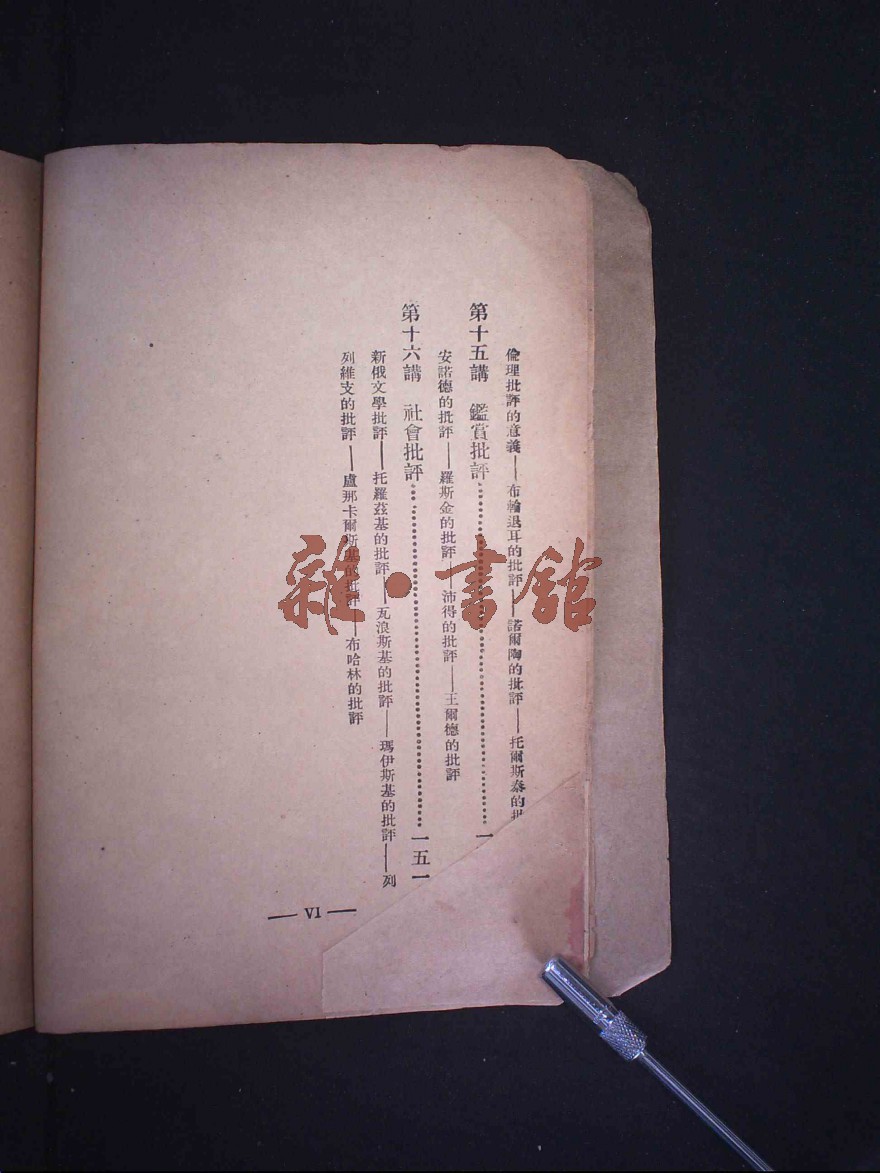 倫理批評的意義——布輪退耳的批評——諾爾陶的批評——托爾斯泰的批
第十五講　鑑賞批評…………一
安諾德的批評——羅斯金的批評——沛得的批評——王爾德的批評
第十六講　社會批評…………一五一
新俄文學批評——托羅茲基的批評——瓦浪斯基的批評——瑪伊斯基的批評——列
列維支的批評——盧那卡爾斯基的批評——布哈林的批評
— VI —
雜·書館